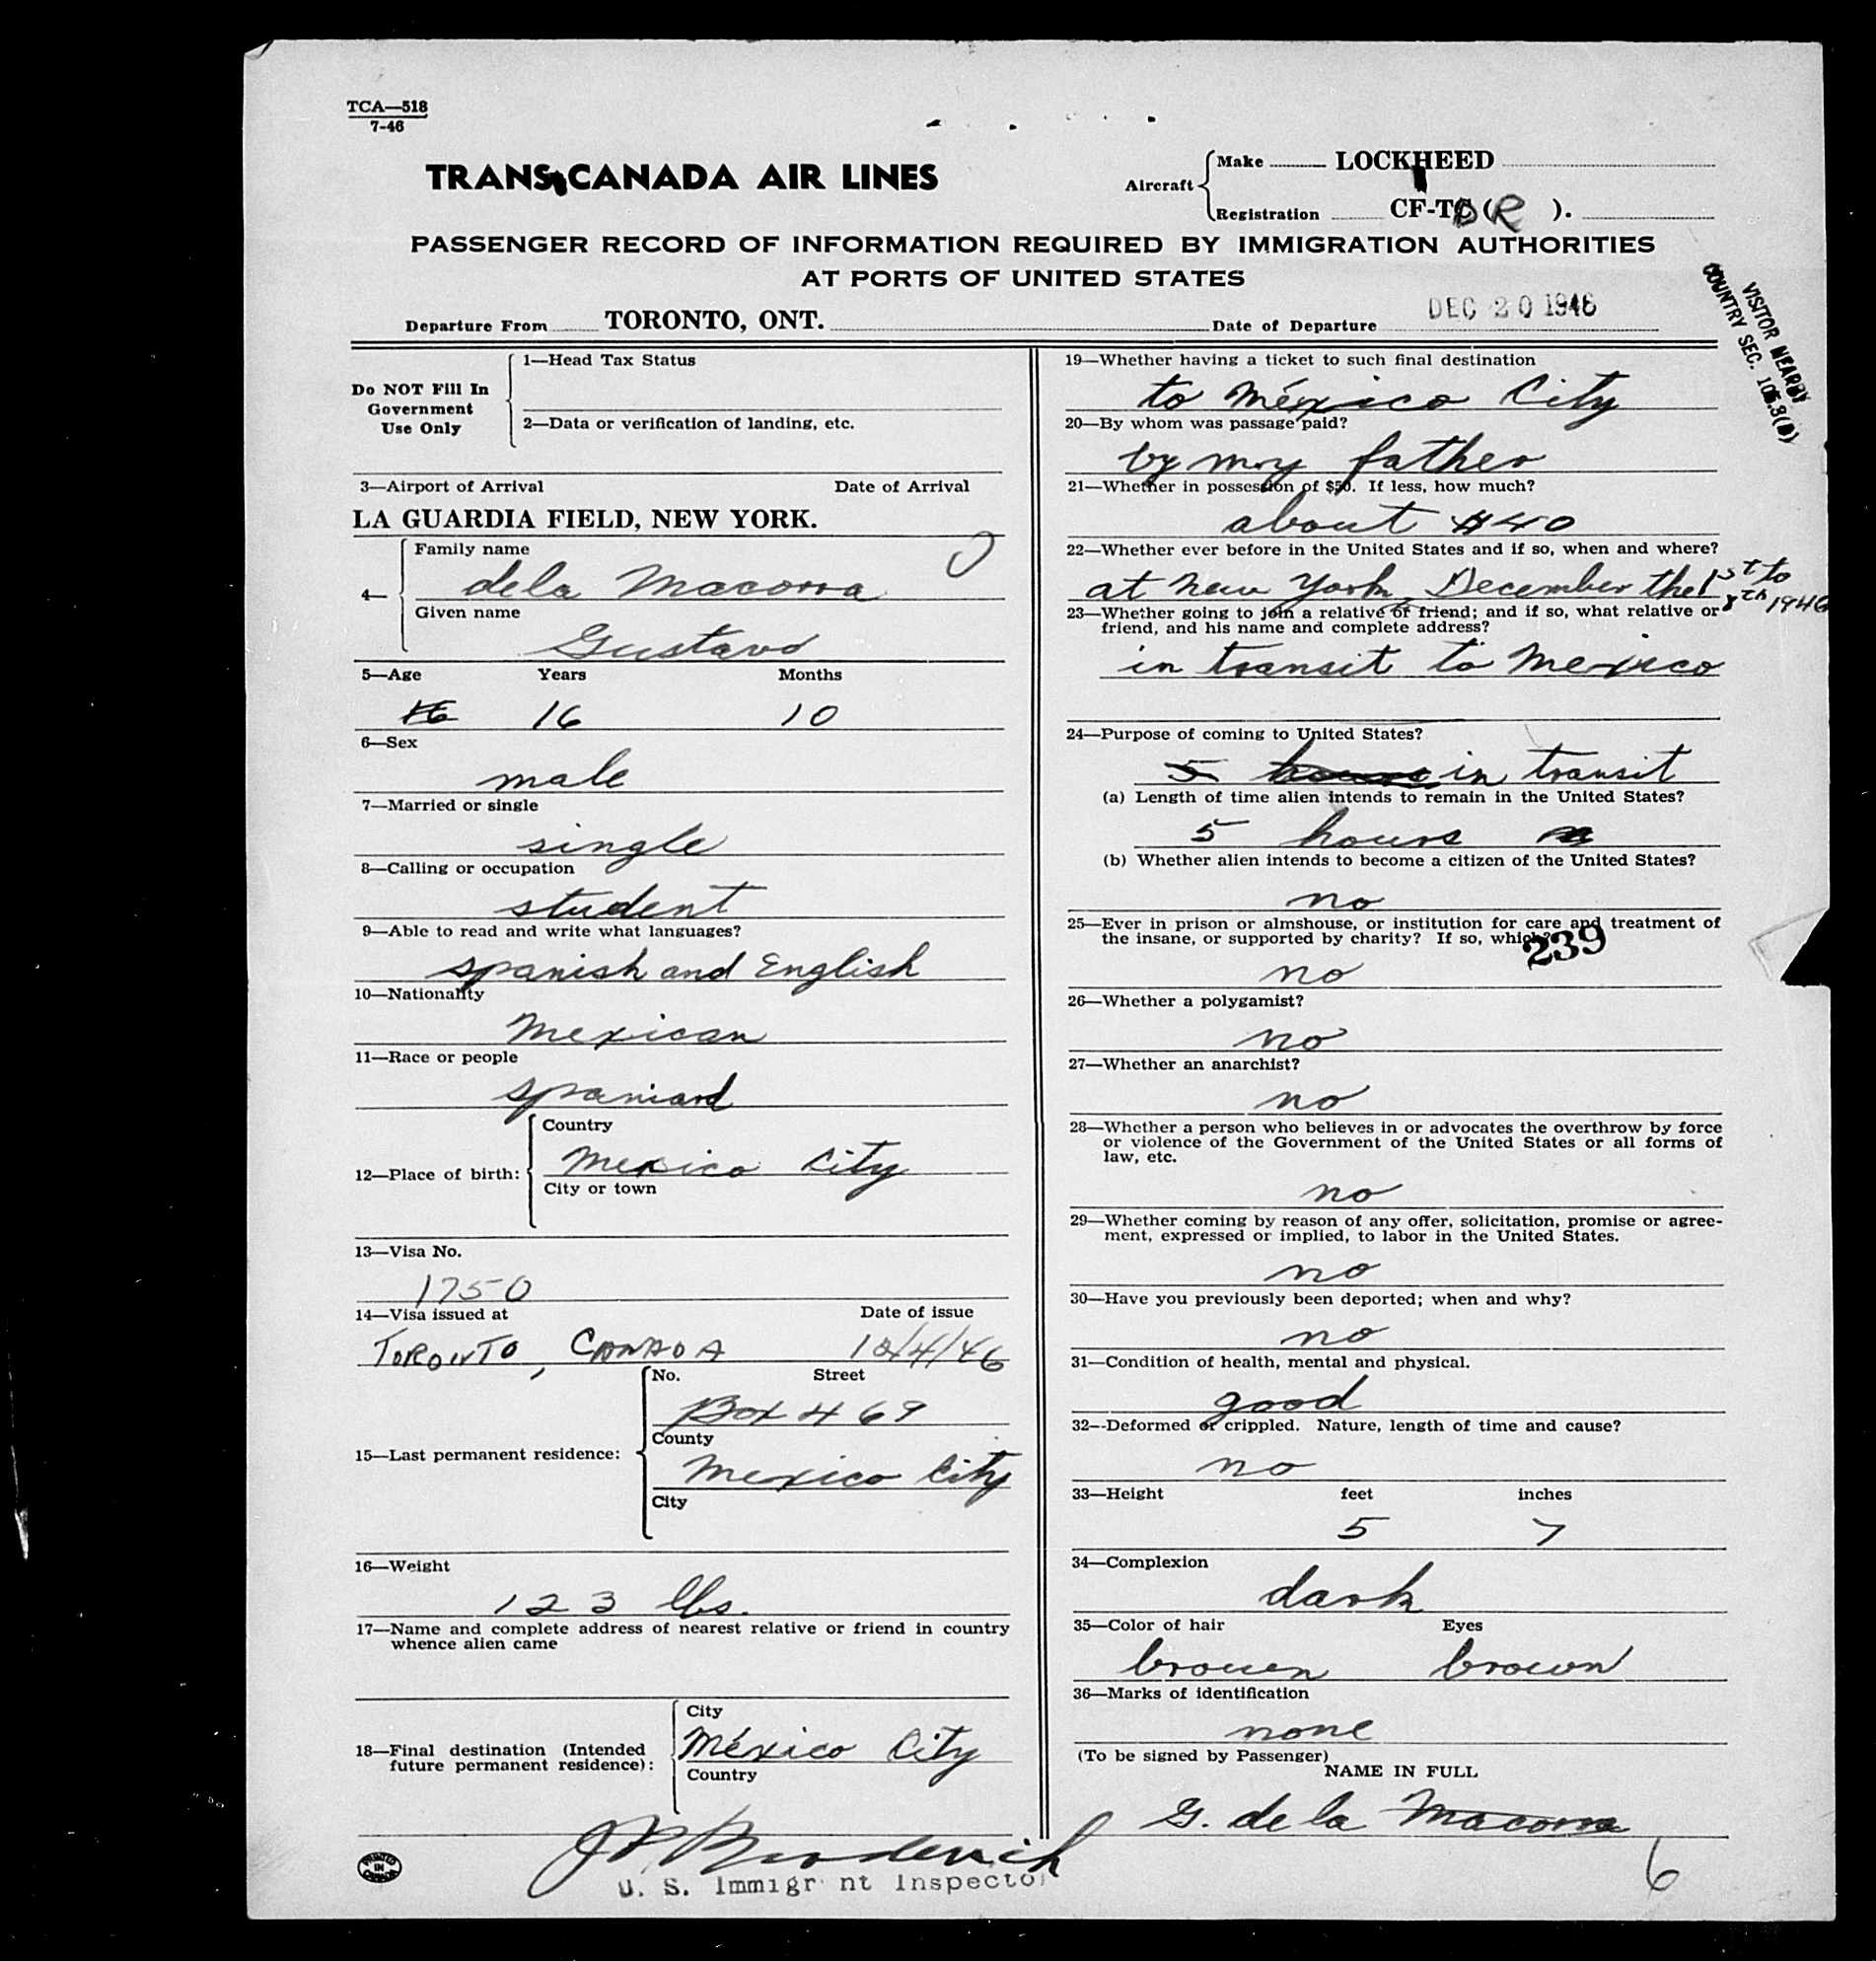 TCA—518
7-46
TRANS-CANADA AIR LINES
Aircraft
Make LOCKHEED
Registration CF-T ( R ).
PASSENGER RECORD OF INFORMATION REQUIRED BY IMMIGRATION AUTHORITIES
AT PORTS OF UNITED STATES
Departure From TORONTO, ONT. Date of Departure DEC 20 1946
VISITOR NEARBY
COUNTRY SEC.
Do NOT Fill In
Government
Use Only
1—Head Tax Status
2—Data or verification of landing, etc.
3—Airport of Arrival Date of Arrival
LA GUARDIA FIELD, NEW YORK.
4—
Family name
de la Macorra
Given name
Gustavo
5—Age Years Months
16 16 10
6—Sex
male
7—Married or single
single
8—Calling or occupation
student
9—Able to read and write what languages?
spanish and English
10—Nationality
Mexican
11—Race or people
spaniard
12—Place of birth:
Country
Mexico City
City or town
13—Visa No.
1750
14—Visa issued at Date of issue
TORONTO, CANADA 12/4/46
15—Last permanent residence:
No. Street
Box 469
County
Mexico City
City
16—Weight
123 lbs.
17—Name and complete address of nearest relative or friend in country
whence alien came
18—Final destination (Intended
future permanent residence):
City
México City
Country
U. S. Immigrant Inspector
PRINTED IN CANADA
19—Whether having a ticket to such final destination
to México City
20—By whom was passage paid?
by my father
21—Whether in possession of $50. If less, how much?
about $40
22—Whether ever before in the United States and if so, when and where?
at New York, December the 1st to
8th 1946
23—Whether going to join a relative or friend; and if so, what relative or
friend, and his name and complete address?
in transit to Mexico
24—Purpose of coming to United States?
5 hours in transit
(a) Length of time alien intends to remain in the United States?
5 hours
(b) Whether alien intends to become a citizen of the United States?
no
25—Ever in prison or almshouse, or institution for care and treatment of
the insane, or supported by charity? If so, which?
239
no
26—Whether a polygamist?
no
27—Whether an anarchist?
no
28—Whether a person who believes in or advocates the overthrow by force
or violence of the Government of the United States or all forms of
law, etc.
no
29—Whether coming by reason of any offer, solicitation, promise or agree-
ment, expressed or implied, to labor in the United States.
no
30—Have you previously been deported; when and why?
no
31—Condition of health, mental and physical.
good
32—Deformed or crippled. Nature, length of time and cause?
no
33—Height feet inches
5 7
34—Complexion
dark
35—Color of hair Eyes
brown brown
36—Marks of identification
none
(To be signed by Passenger)
NAME IN FULL
G. de la Macorra
6